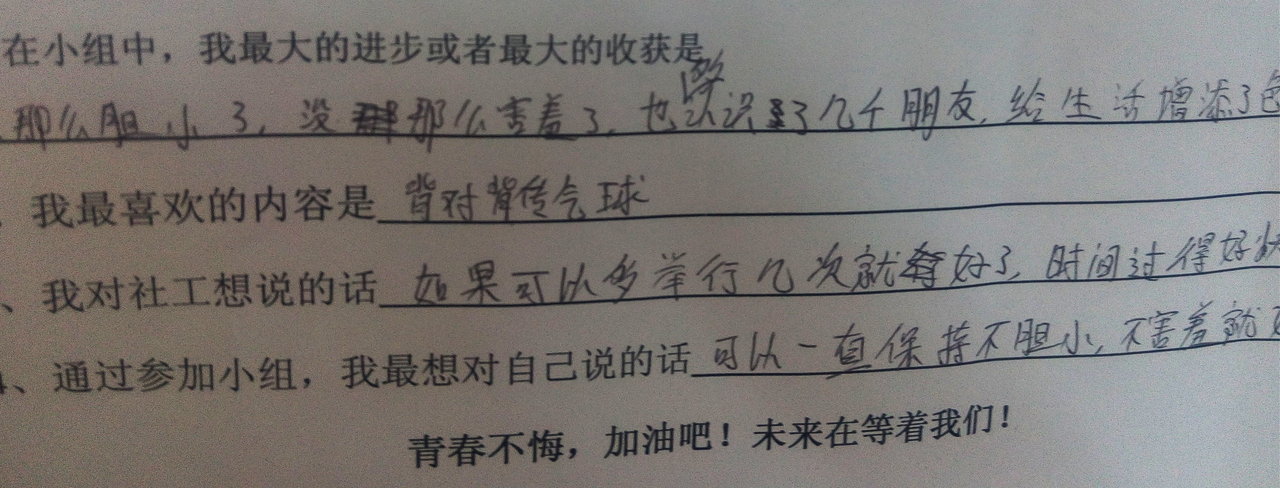 在小组中，我最大的进步或者最大的收获是
那么胆小了，没那么害羞了，也认识了几个朋友，给生活增添了色
我最喜欢的内容是 背对背传气球
、我对社工想说的话 如果可以多举行几次就好了，时间过得好快
、通过参加小组，我最想对自己说的话 可以一直保持不胆小，不害羞就
青春不悔，加油吧！未来在等着我们！